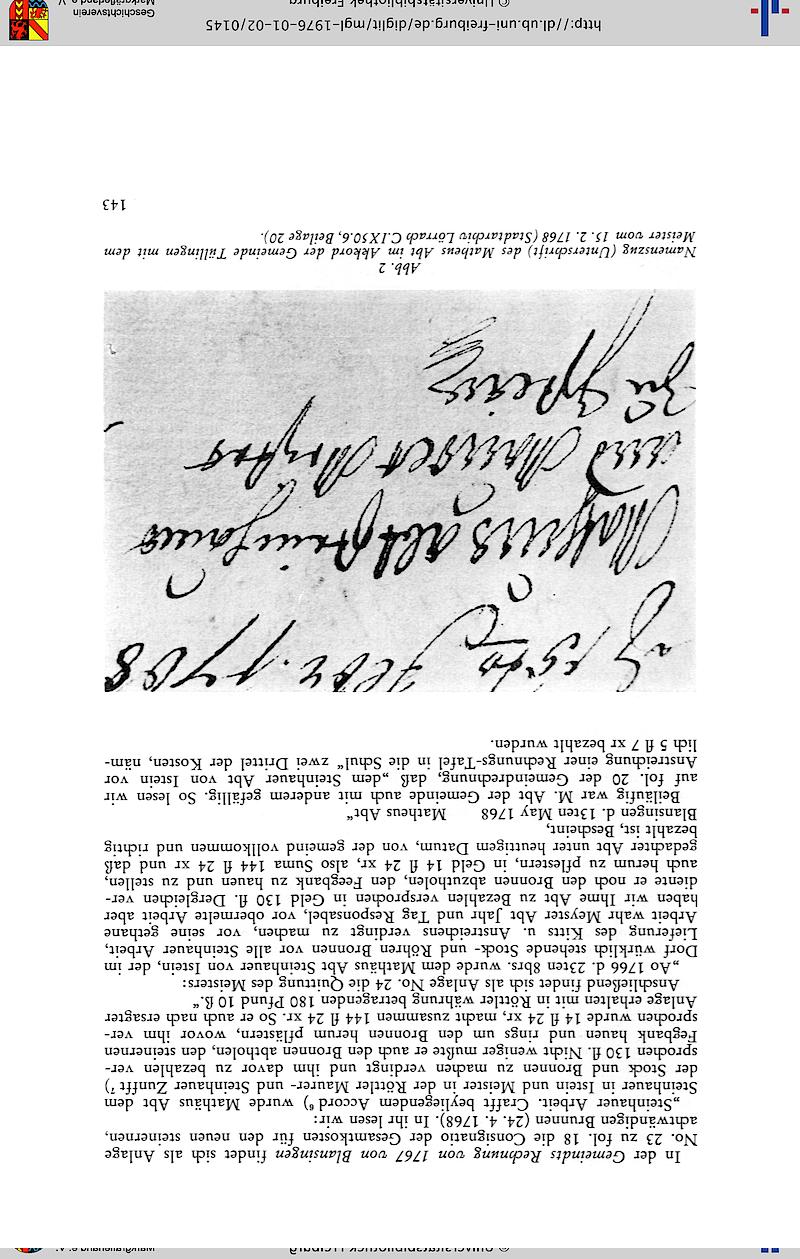 In der Gemeindts Rechnung von 1767 von Blansingen findet sich als Anlage
No. 23 zu fol. 18 die Consignatio der Gesamtkosten für den neuen steinernen,
achtwändigen Brunnen (24. 4. 1768). In ihr lesen wir:
„Steinhauer Arbeit. Crafft beyliegendem Accord ⁶) wurde Mathäus Abt dem
Steinhauer in Istein und Meister in der Röttler Maurer- und Steinhauer Zunfft ⁷)
der Stock und Bronnen zu machen verdingt und ihm davor zu bezahlen ver-
sprochen 130 fl. Nicht weniger mußte er auch den Bronnen abtholen, den steinernen
Fegbank hauen und rings um den Bronnen herum pflästern, wovor ihm ver-
sprochen wurde 14 fl 24 xr, macht zusammen 144 fl 24 xr. So er auch nach ersagter
Anlage erhalten mit in Röttler währung betragenden 180 Pfund 10 ß.“
Anschließend findet sich als Anlage No. 24 die Quittung des Meisters:
„Ao 1766 d. 23ten 8brs. wurde dem Mathäus Abt Steinhauer von Istein, der im
Dorf würklich stehende Stock- und Röhren Bronnen vor alle Steinhauer Arbeit,
Lieferung des Kitts u. Anstreichens verdingt zu machen, vor seine gethane
Arbeit wahr Meyster Abt Jahr und Tag Responsabel, vor obermelte Arbeit aber
haben wir Ihme Abt zu Bezahlen versprochen in Geld 130 fl. Dergleichen ver-
diente er noch den Bronnen abzutholen, den Feegbank zu hauen und zu stellen,
auch herum zu pflestern, in Geld 14 fl 24 xr, also Suma 144 fl 24 xr und daß
gedachter Abt unter heutigem Datum, von der gemeind vollkommen und richtig
bezahlt ist, Bescheint,
Blansingen d. 13ten May 1768 Matheus Abt“
Beiläufig war M. Abt der Gemeinde auch mit anderem gefällig. So lesen wir
auf fol. 20 der Gemeindrechnung, daß „dem Steinhauer Abt von Istein vor
Anstreichung einer Rechnungs-Tafel in die Schul“ zwei Drittel der Kosten, näm-
lich 5 fl 7 xr bezahlt wurden.
15ten Febr. 1768
Matheus abt steinhauer
und Maurer Meyster
Abb. 2
Namenszug (Unterschrift) des Matheus Abt im Akkord der Gemeinde Tüllingen mit dem
Meister vom 15. 2. 1768 (Stadtarchiv Lörrach C.IX50.6, Beilage 20).
143
http://dl.ub.uni-freiburg.de/diglit/mgl-1976-01-02/0145
© Universitätsbibliothek Freiburg
Geschichtsverein
Markgräflerland e. V.